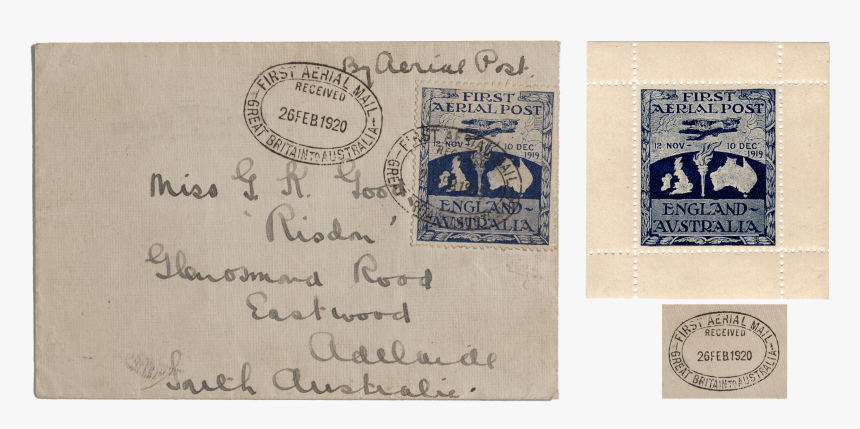 By Aerial Post.
FIRST AERIAL MAIL
RECEIVED
26FEB1920
GREAT BRITAIN TO AUSTRALIA
FIRST
AERIAL POST
12 NOV - 10 DEC
1919
ENGLAND-
AVSTRALIA
FIRST AERIAL MAIL
GREAT
Miss G. K. Good
'Risdon'
Glenosmond Road
Eastwood
Adelaide
South Australia.
FIRST
AERIAL POST
12 NOV - 10 DEC
1919
ENGLAND-
AVSTRALIA
FIRST AERIAL MAIL
RECEIVED
26FEB1920
GREAT BRITAIN TO AUSTRALIA